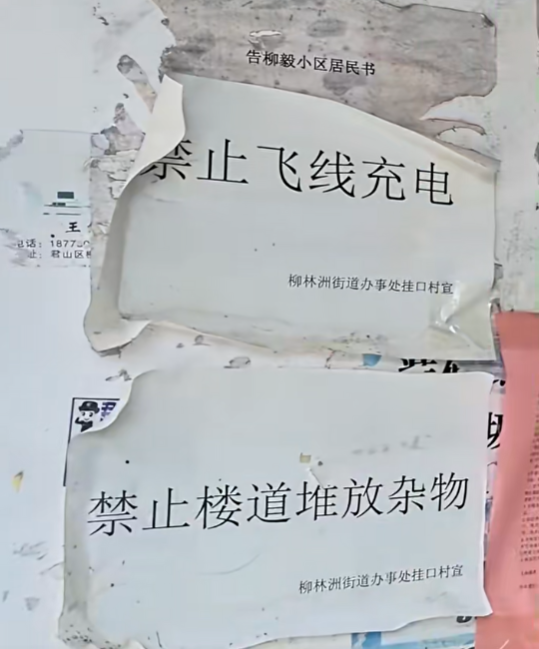 告柳毅小区居民书
禁止飞线充电
柳林洲街道办事处挂口村宣
王
电话：1877
址：君山区
禁止楼道堆放杂物
柳林洲街道办事处挂口村宣